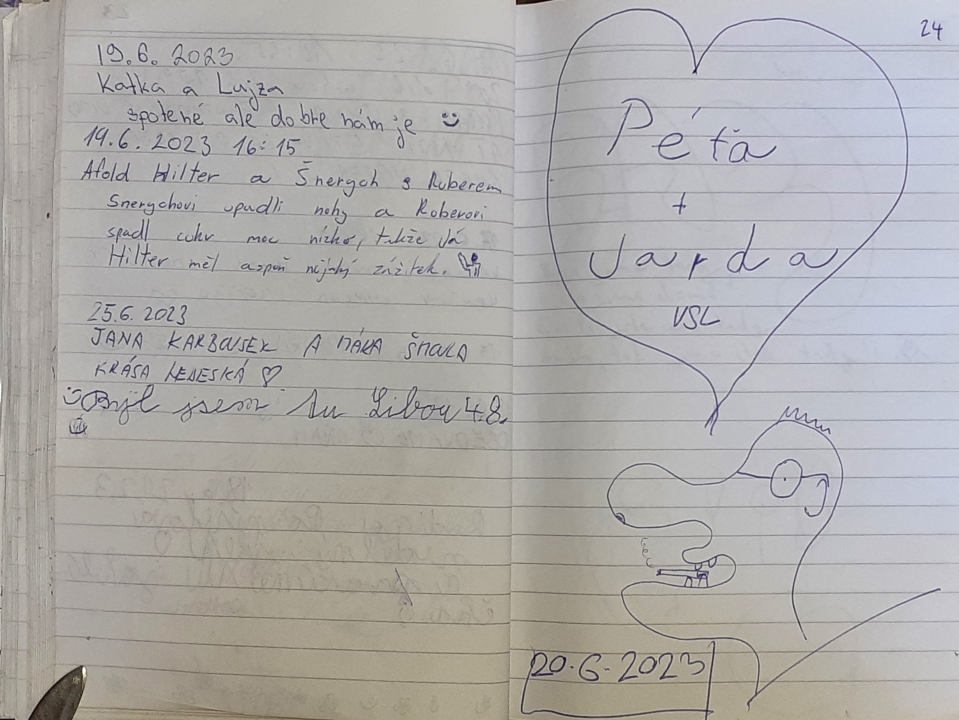 19.6.2023
Katka a Lujza
spotené ale dobre nám je
19.6.2023 16:15
Afold Hilter a Šnerych s Ruberem
Snerychovi upadli nohy a Roberovi
spadl cukr moc nízko, takže Já
Hilter měl aspoň nějaký zážitek.
25.6.2023
JANA KARBOUSEK A MÁRA ŠMOULA
KRÁSA NEBESKÁ
Byl jsem tu Libou 4.8.
24
Péťa
+
Jarda
VSL
20.6.2023